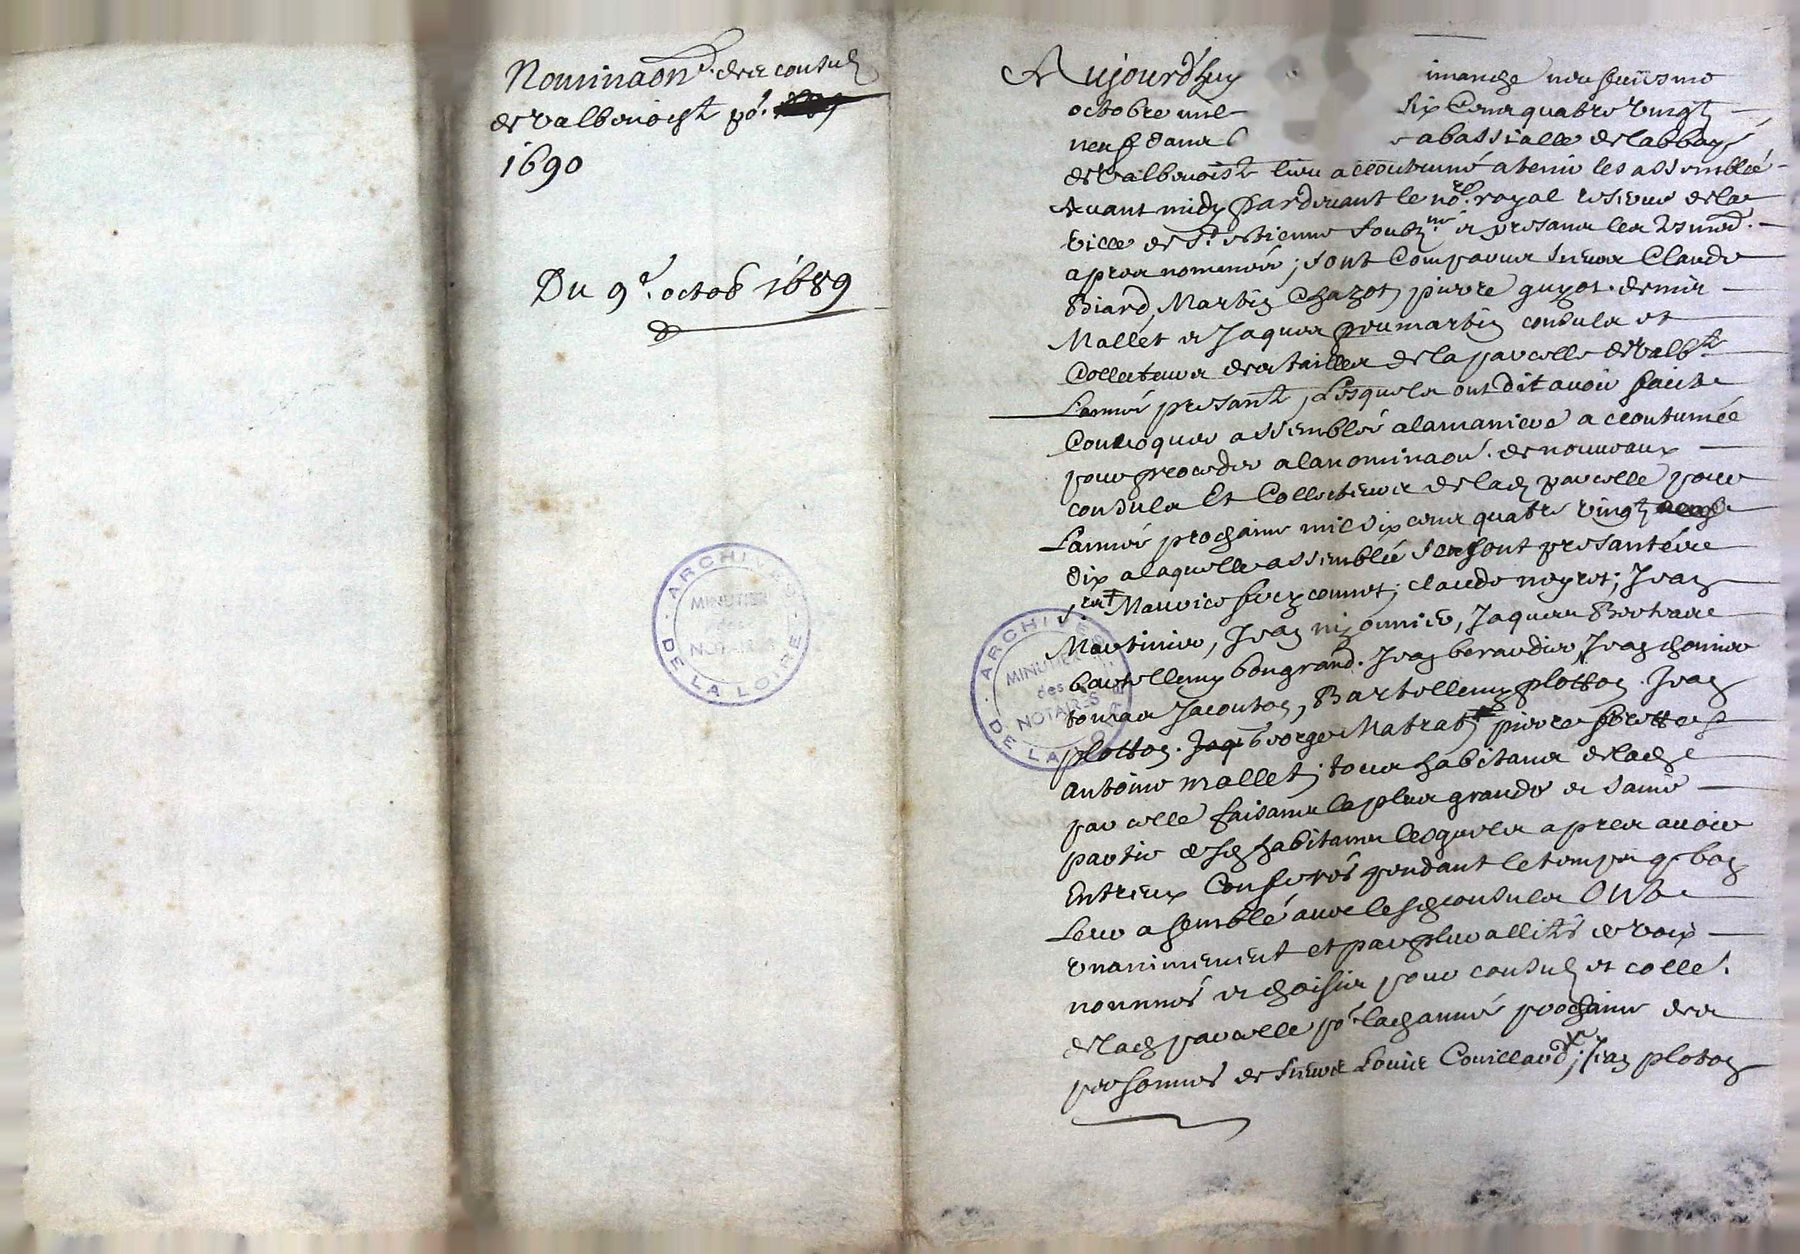 Nominaon. des consulz
de valbenoiste po.r
1690
Du 9e. octob 1689
ARCHIVES DE LA LOIRE
MINUTIER
des
NOTAIRES
Aujourd'huy imanche neufuiesme
octobre mil six Cens quatre vingtz
neuf dans abassialle de labbaye
de Valbenoiste lieu accoutumé a tenir les assemblée
Avant midy pardevant le nore. royal reservé de la
ville de St. estienne soubzné. et presans les tesmo.
apres nommés ; sont Comparus sieurs Claude
Biard, Martin Chazot, pierre guyot. denis
Mallet et Jaques poumartin consulz et
Collecteurs des tailles de la parcelle de valbte.
Lannée presante, Lesquels ont dit avoir faicte
Convoquer assemblée a la maniere accoutumée
pour proceder a la nominaon. de nouveaux
consulz Et Collecteurs de lad parcelle pour
Lannée prochaine mil six cens quatre vingtz
dix a laquelle assemblée se sont presantés
Maurice ; claude neyret ; Jean
Martinier, Jean, Jaques Bertrare
bartellemy bongrand. Jean beraudier, Jean
Jacouton, Bartellemy plotton. Jean
plotton. George Matrat, pierre
Antoine mallet, tous habitans de lade
parcelle faisans la plus grande et saine
partie desd habitans lesquels apres avoir
Entreux Conferés pendant le temps q. bon
Leur a semblé avec lesd consulz Ont
unanimement et par pluralitté de voix
nommés et choisis pour consulz et colle.
de lad parcelle po.r lad année prochaine des
personnes de sieurs Louis Couillaud, ; Jean ploton
ARCHIVES DE LA LOIRE
MINUTIER
des
NOTAIRES